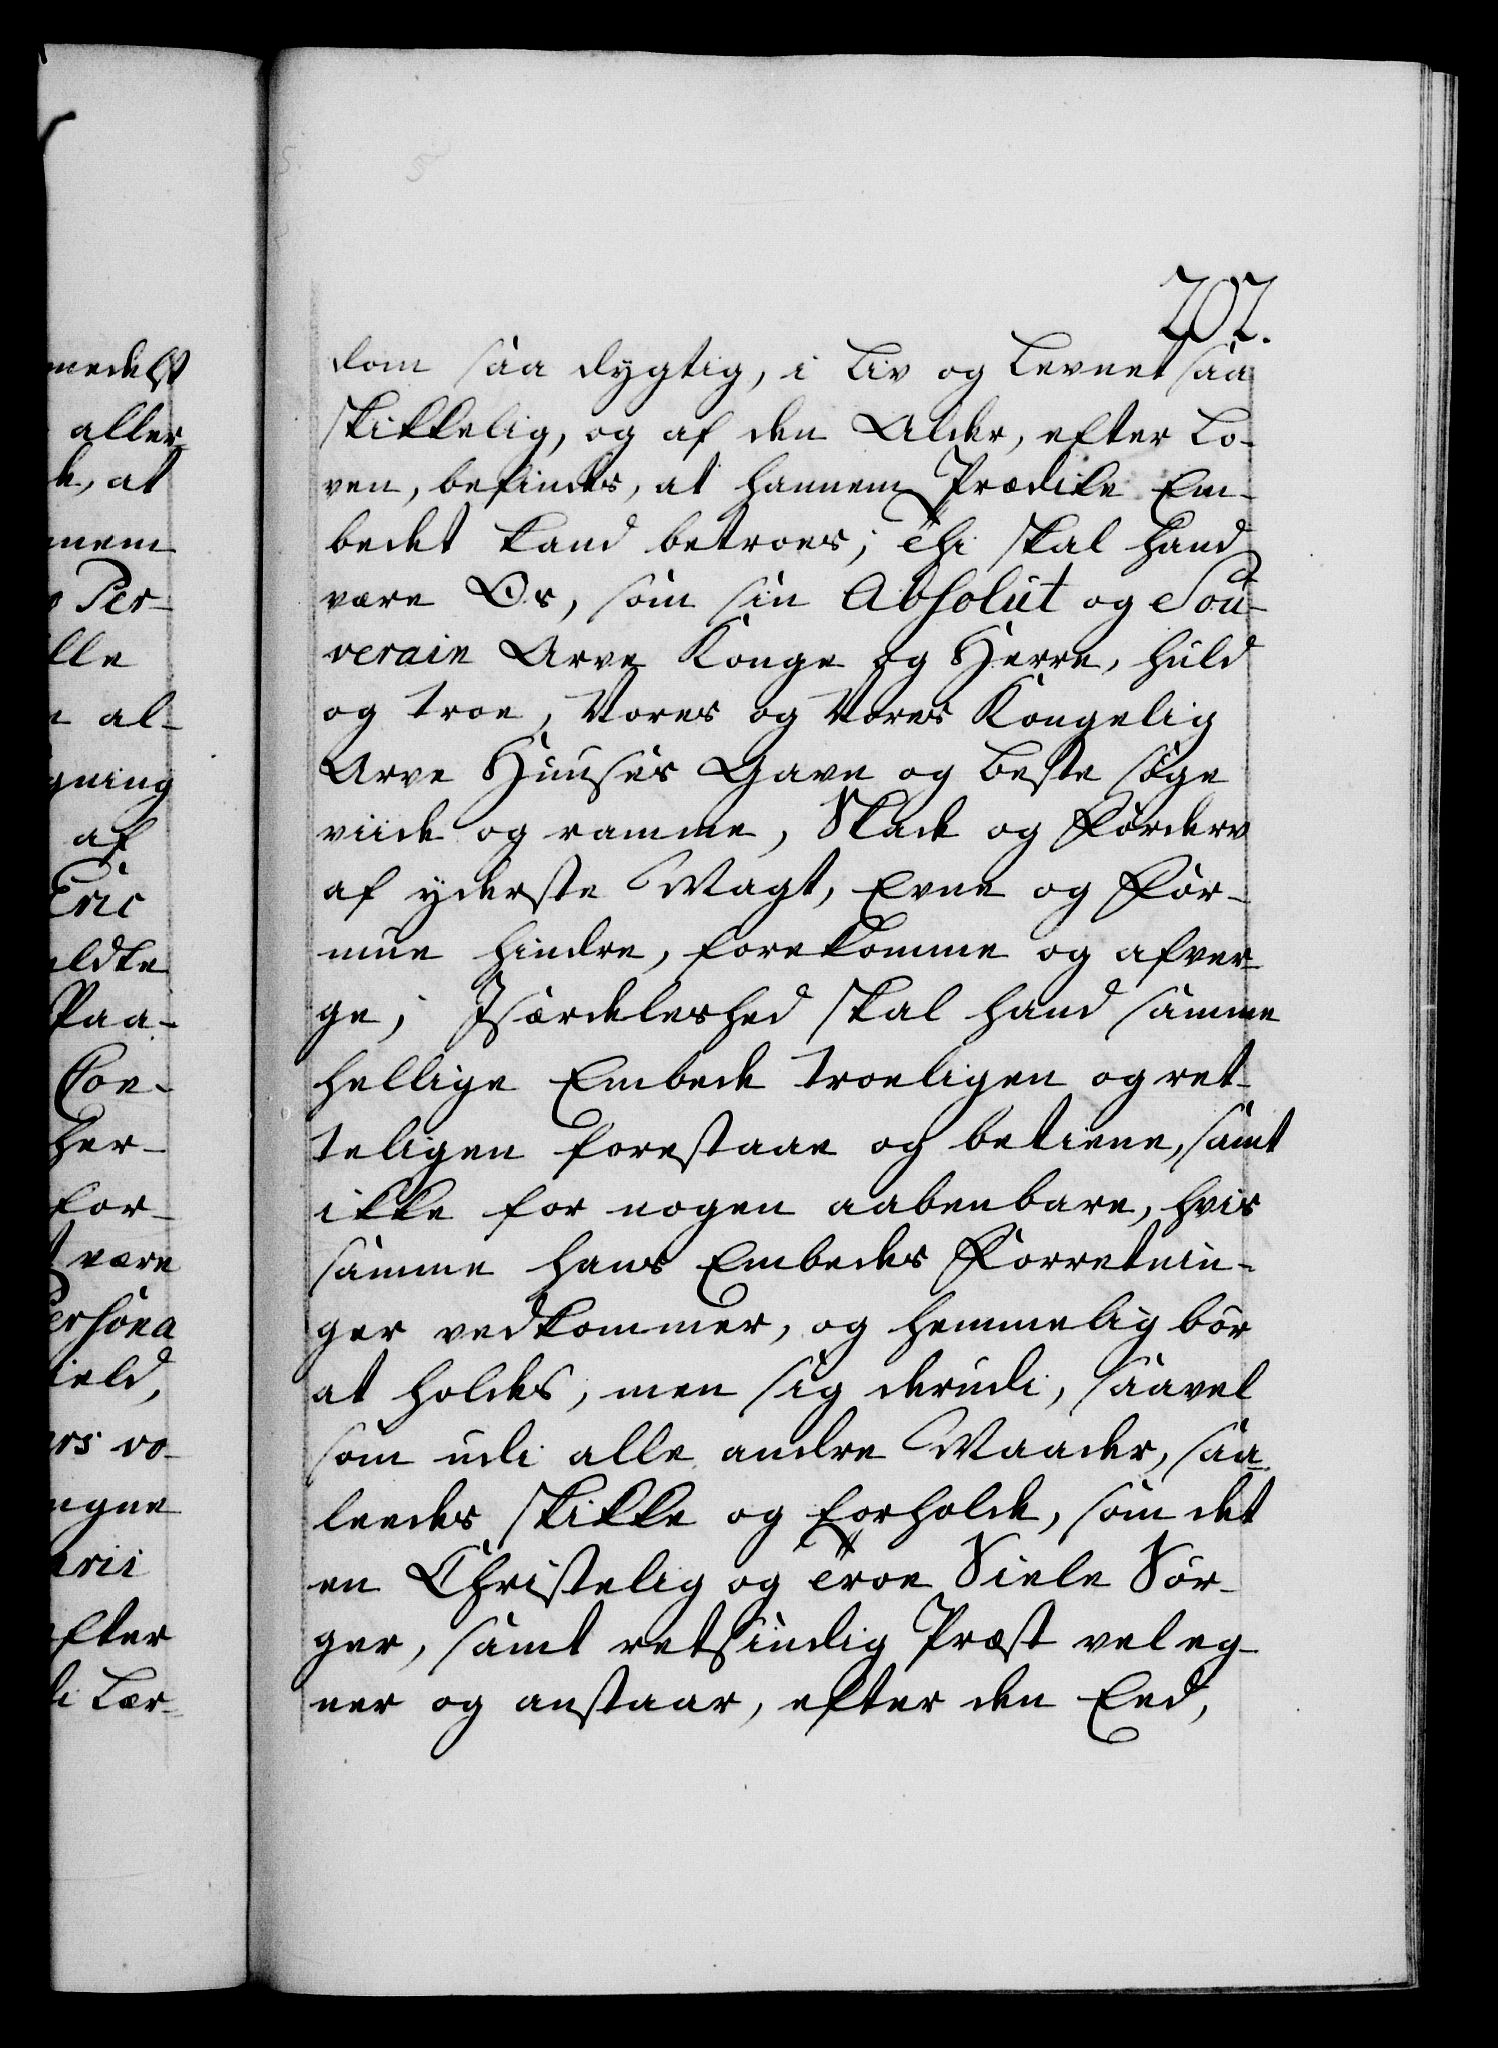 medelst
aller-
de, at
nem
Per-
lle
al-
gning
af
Eric
ldte
Paa-
Con-
her-
for-
være
Persona
ield,
ers vo-
ngne
arii
efter
di Lær-
202.
dom saa dygtig, i Liv og Levnet saa
skikkelig, og af den Alder, efter Lo-
ven, befindes, at hannem Prædike Em-
bedet kand betroes; Thi skal hand
være Os, som sin Absolut og Sou-
verain Arve Konge og Herre, huld
og troe, Vores og Vores Kongelig
Arve Huuses Gavn og beste søge
viide og ramme, Skade og Forderv
af yderste Magt, Evne og For-
mue hindre, forekomme og afver-
ge; Isærdeleshed skal hand samme
hellige Embede troeligen og ret-
teligen forestaae og betiene, samt
ikke for nogen aabenbare, hvis
samme hans Embedes Forretnin-
ger vedkommer, og hemmelig bør
at holdes, men sig derudi, saavel
som udi alle andre Maader, saa-
leedes skikke og forholde, som det
en Christelig og troe Siele Sør-
ger, samt retsindig Præst vel eg-
ner og anstaar, efter den Eed,